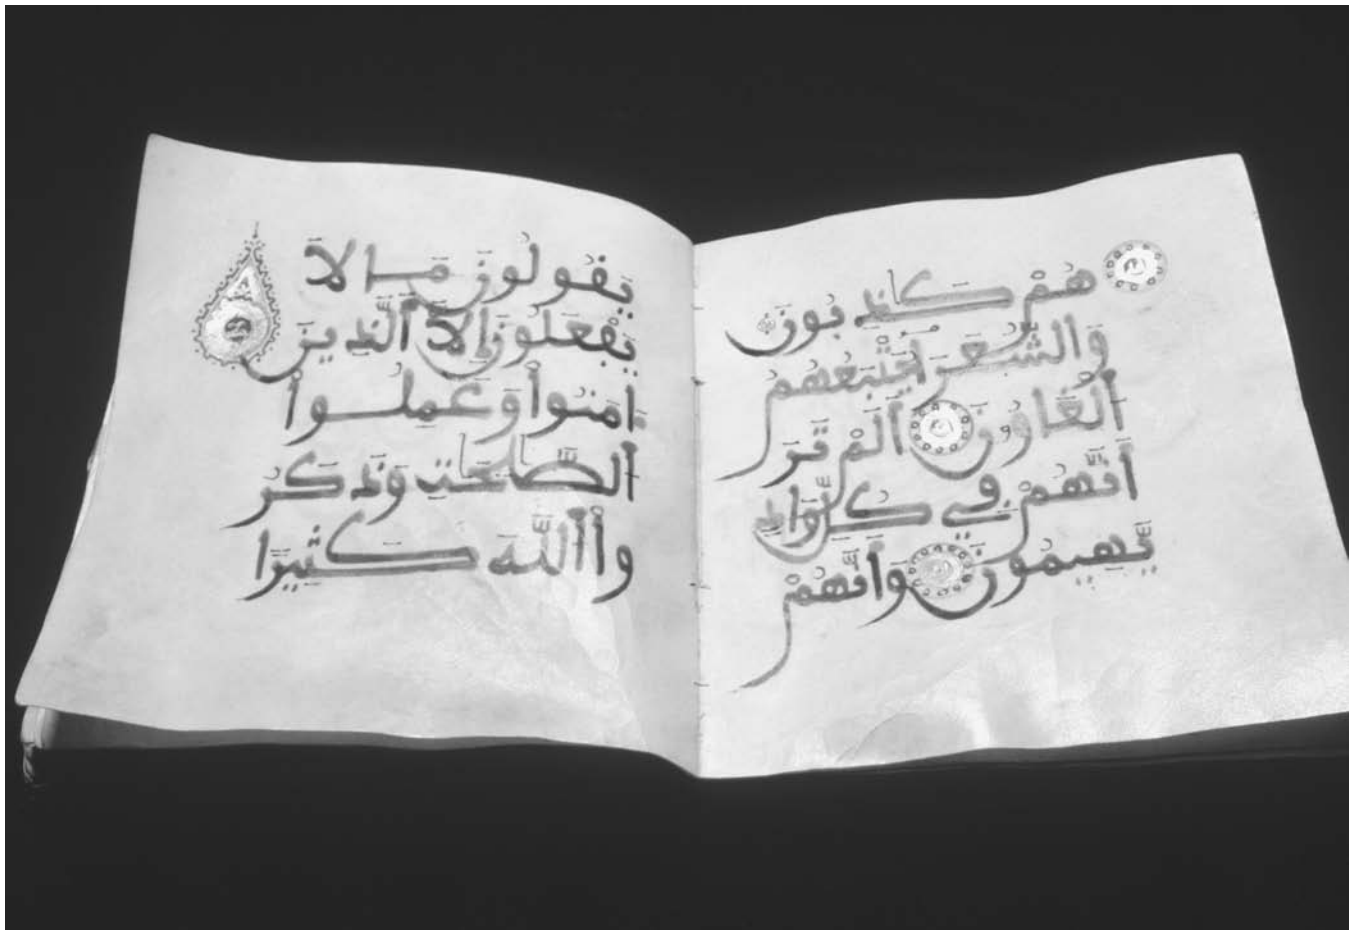 هُمْ كَٰذِبُونَ
وَالشُّعَرَآءُ يَتْبَعُهُمُ
الْغَاوُۥنَ أَلَمْ تَرَ
أَنَّهُمْ فِي كُلِّ وَادٍ
يَّهِيمُونَ وَأَنَّهُمْ
يَقُولُونَ مَا لَا
يَفْعَلُونَ إِلَّا الَّذِينَ
ءَامَنُوا وَعَمِلُوا
الصَّٰلِحَٰتِ وَذَكَرُ
وا اللَّهَ كَثِيرًا